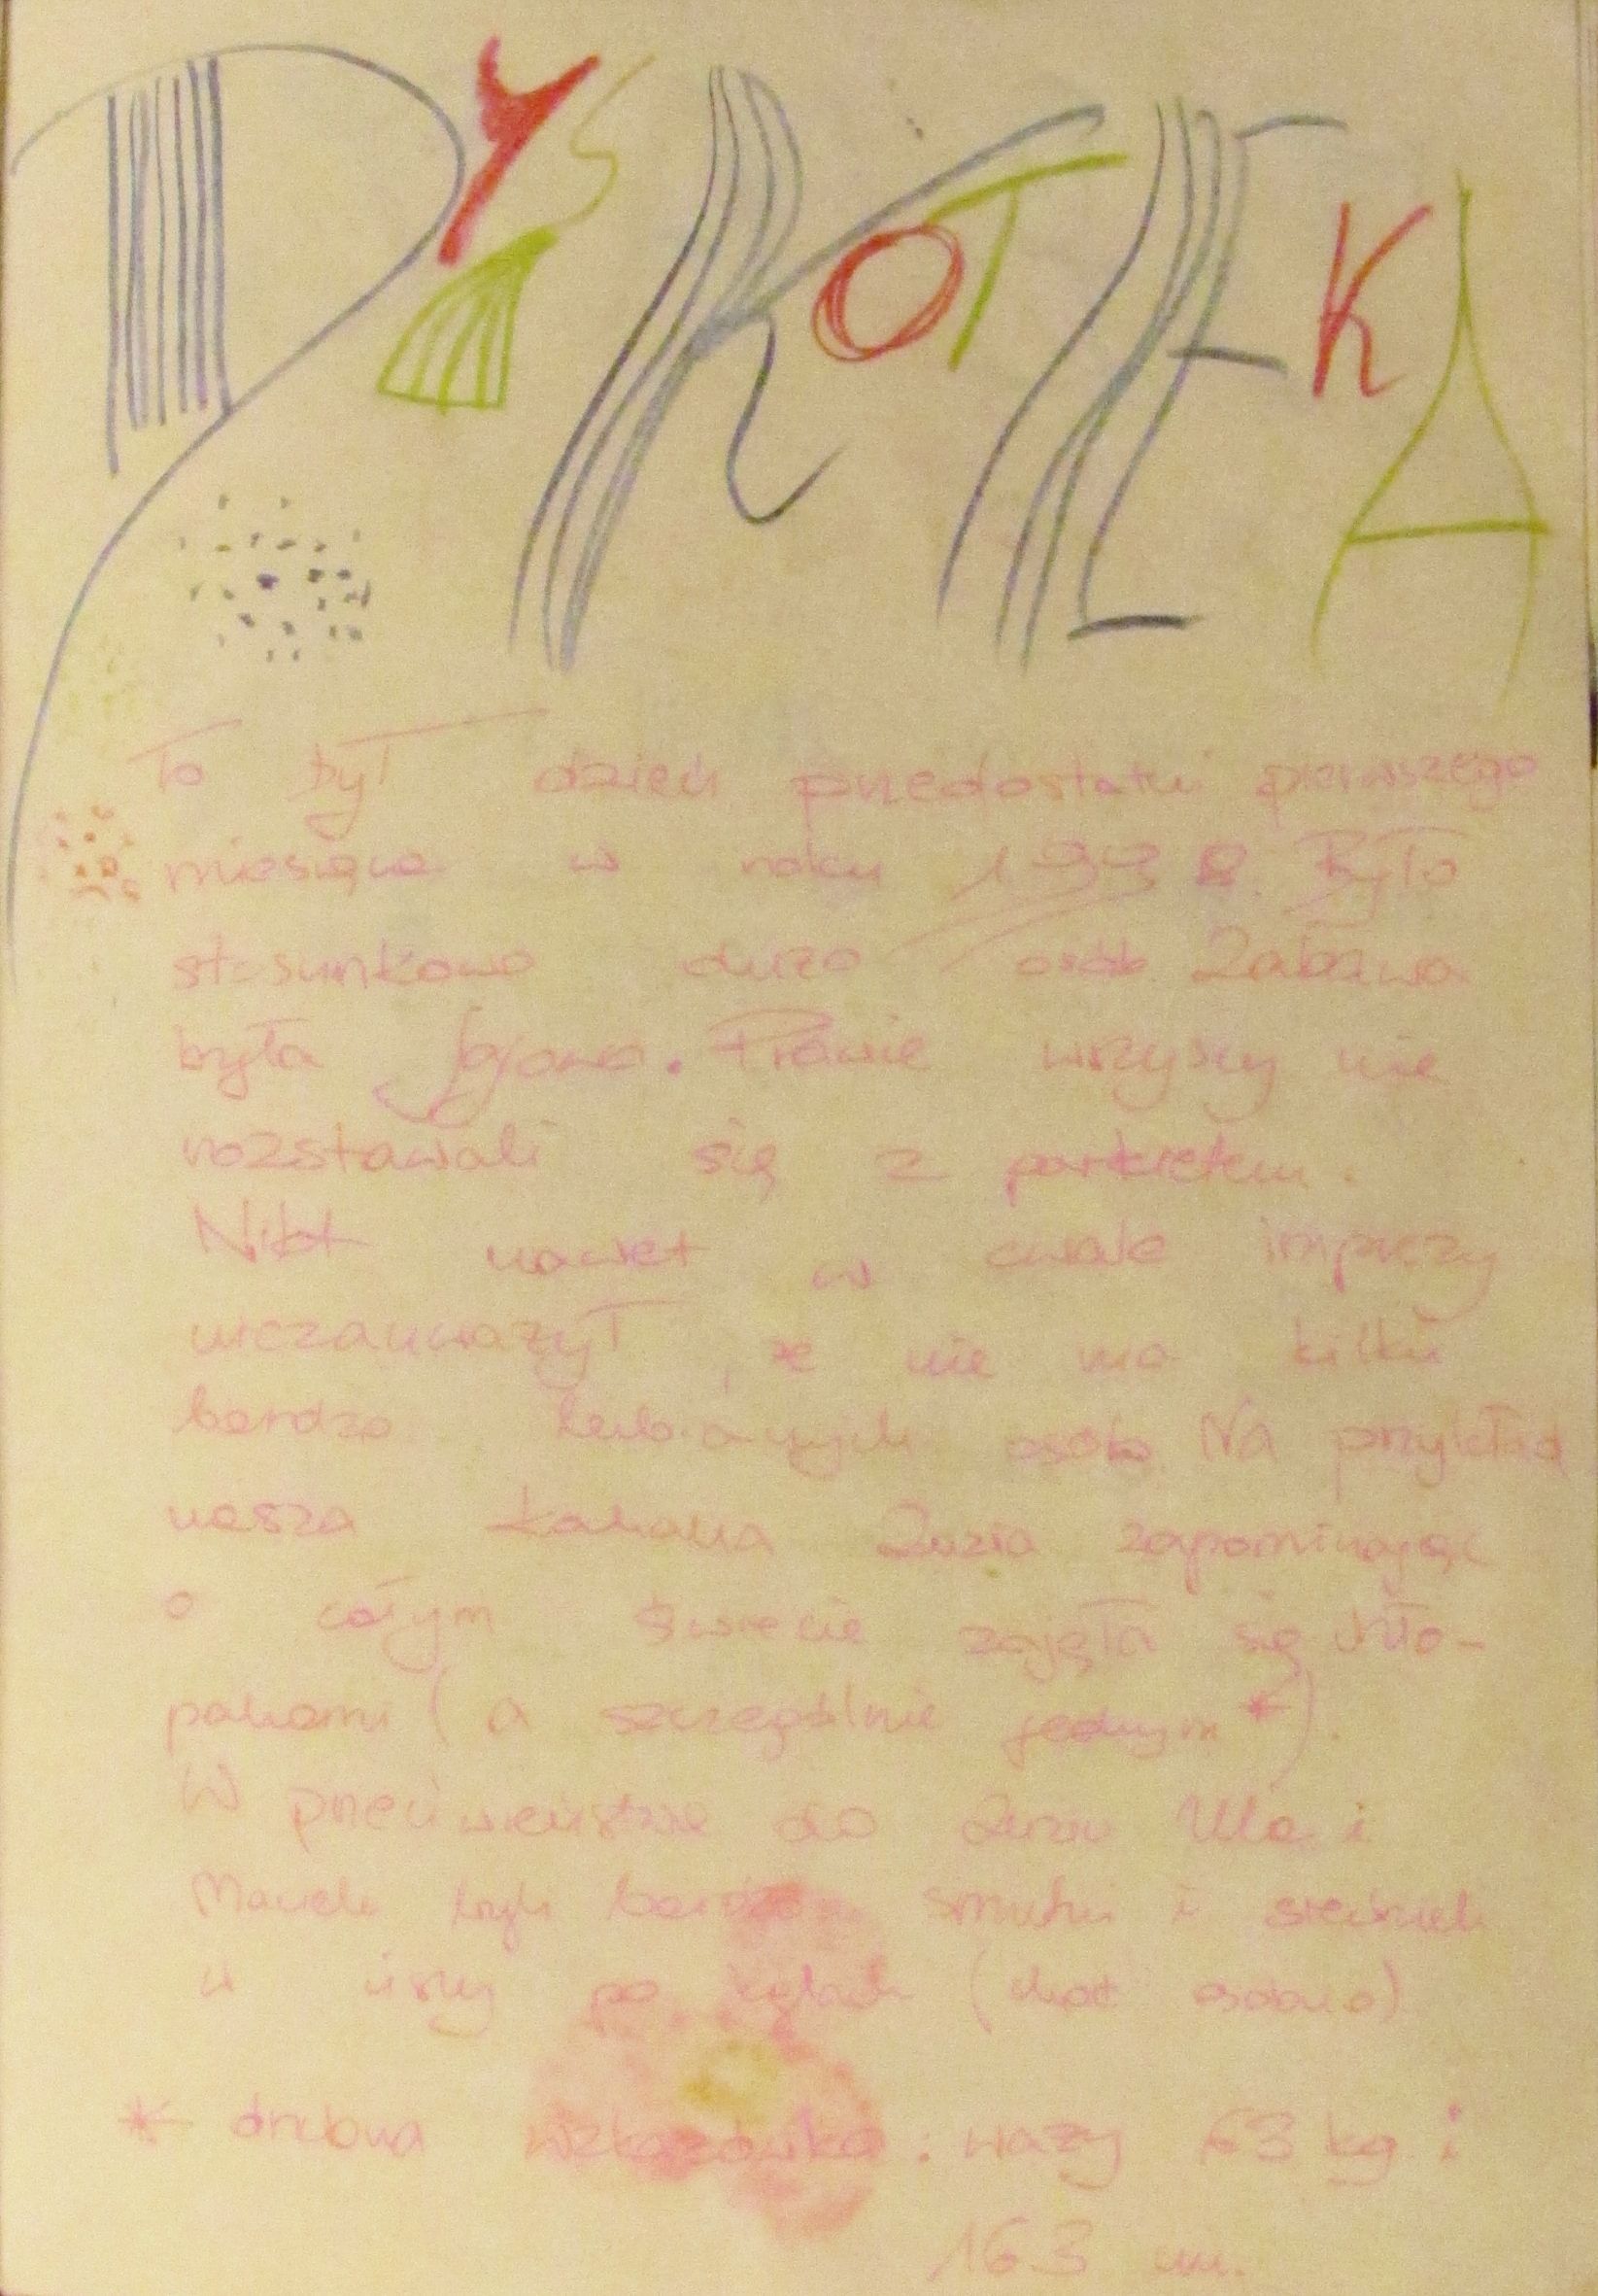 DYSKOTEKA
To był dzień przedostatni pierwszego
miesiąca w roku 1998. Było
stosunkowo dużo osób. Zabawa
była fajowa. Prawie wszyscy nie
rozstawali się z parkietem.
Nikt nawet w czasie imprezy
niezauważył, że nie ma kilku
bardzo lubianych osób. Na przykład
nasza kochana Zuzia zapominając
o całym świecie zajęła się chło-
pakami (a szczególnie jednym*).
W przeciwieństwie do Zuziu Ula i
Maciek byli bardzo smutni i siedzieli
w ciszy po kątach (choć osobno)
* drobna wskazówka: waży 63 kg i
163 cm.